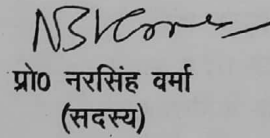 प्रो0 नरसिंह वर्मा
(सदस्य)